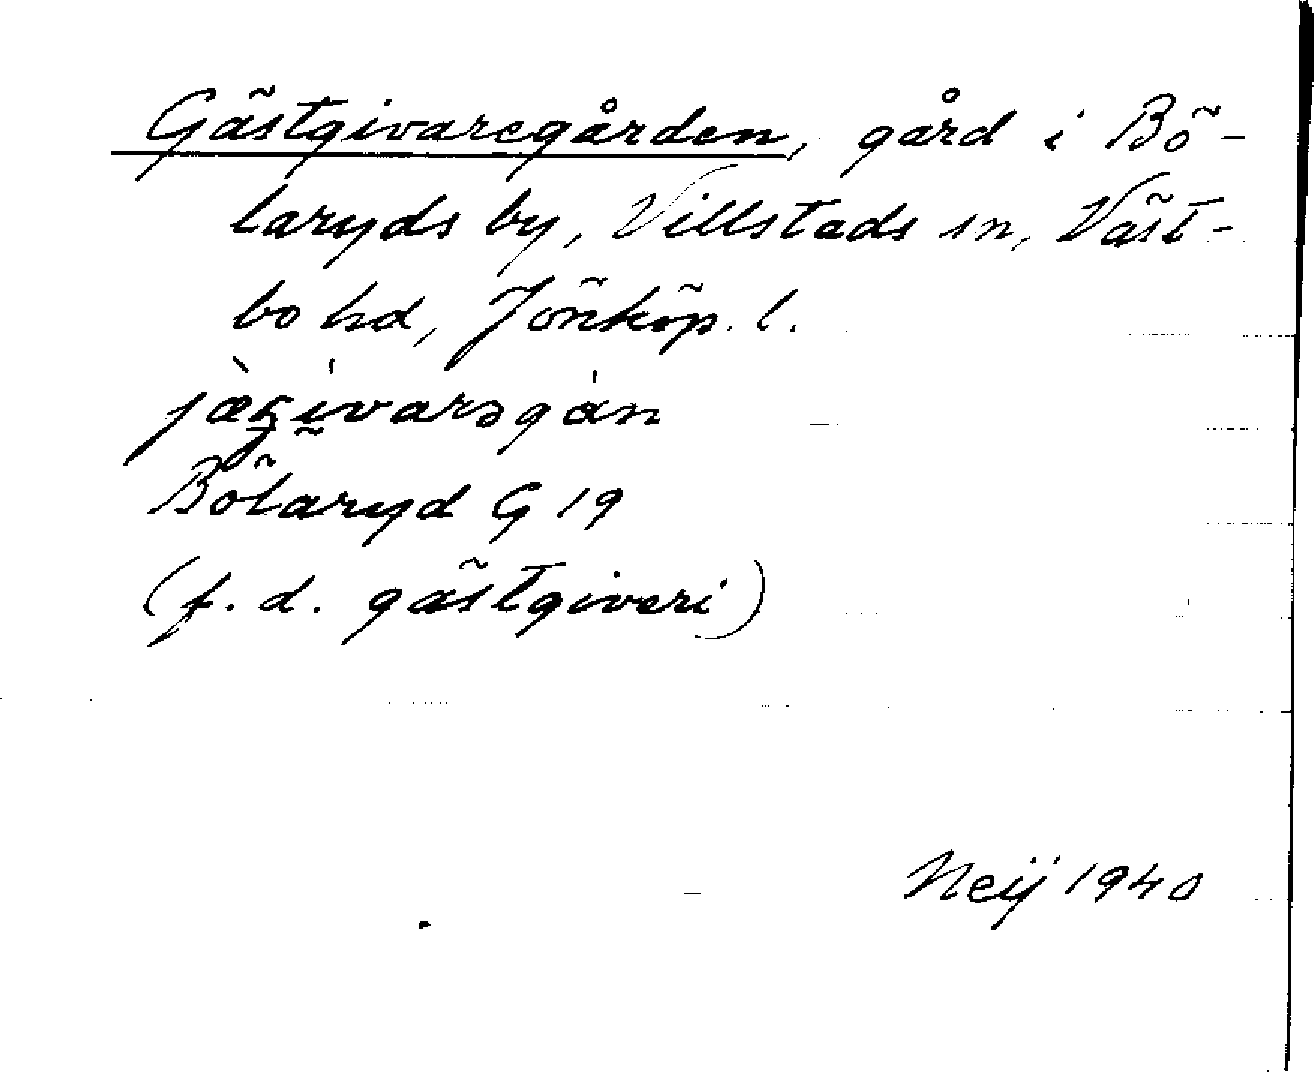 Gästgivaregården, gård i Bö-
laryds by, Villstads sn, Väst-
bo hd, Jönköp. l.
Bölaryd G 19
(f. d. gästgiveri)
Neij 1940